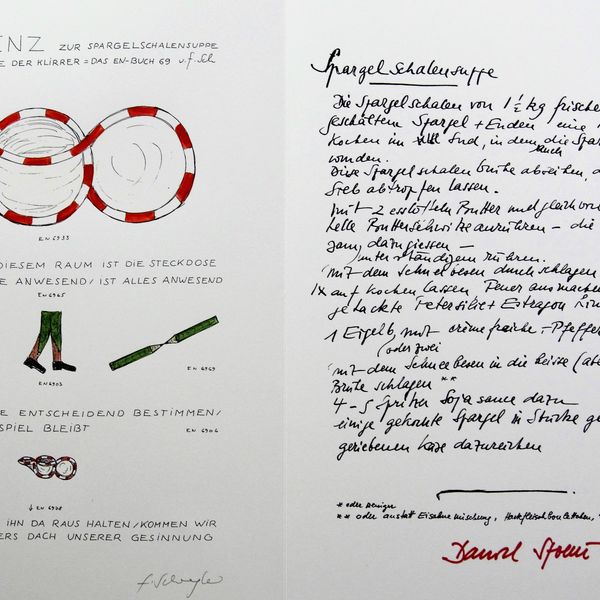 ENZ ZUR SPARGELSCHALENSUPPE
E DER KLIRRER = DAS EN-BUCH 69 v. f. Sch
EN 6933
DIESEM RAUM IST DIE STECKDOSE
E ANWESEND/ IST ALLES ANWESEND
EN 6965
EN 6903
EN 6969
E ENTSCHEIDEND BESTIMMEN/
SPIEL BLEIBT
EN 6906
↓ EN 6908
IHN DA RAUS HALTEN/KOMMEN WIR
ERS DACH UNSERER GESINNUNG
Spargelschalensuppe
Die Spargelschalen von 1 1/2 kg frische
geschältem Spargel + Enden eine
Kochen im Sud, in dem die Spa
auch
wurden.
Diese Spargelschalenbrühe abseihen,
Sieb abtropfen lassen.
mit 2 esslöffeln Butter und gleich vo
helle Butterschwitze anrühren - die
ganz dazugiessen -
unter ständigem rühren.
mit dem Schneebesen durchschlagen
1x aufkochen lassen Feuer ausmachen
gehackte Petersilie + Estragon
1 Eigelb, mit crème fraiche - Pfeffer
(oder zwei
mit dem Schneebesen in die heisse (abe
Brühe schlagen **
4 - 5 Spritzer Soja sauce dazu
einige gekochte Spargel in Stücke ge
geriebenen Käse dazureichen
* oder weniger
** oder anstatt Eisahnemischung, Hackfleischbouletten,
Daniel